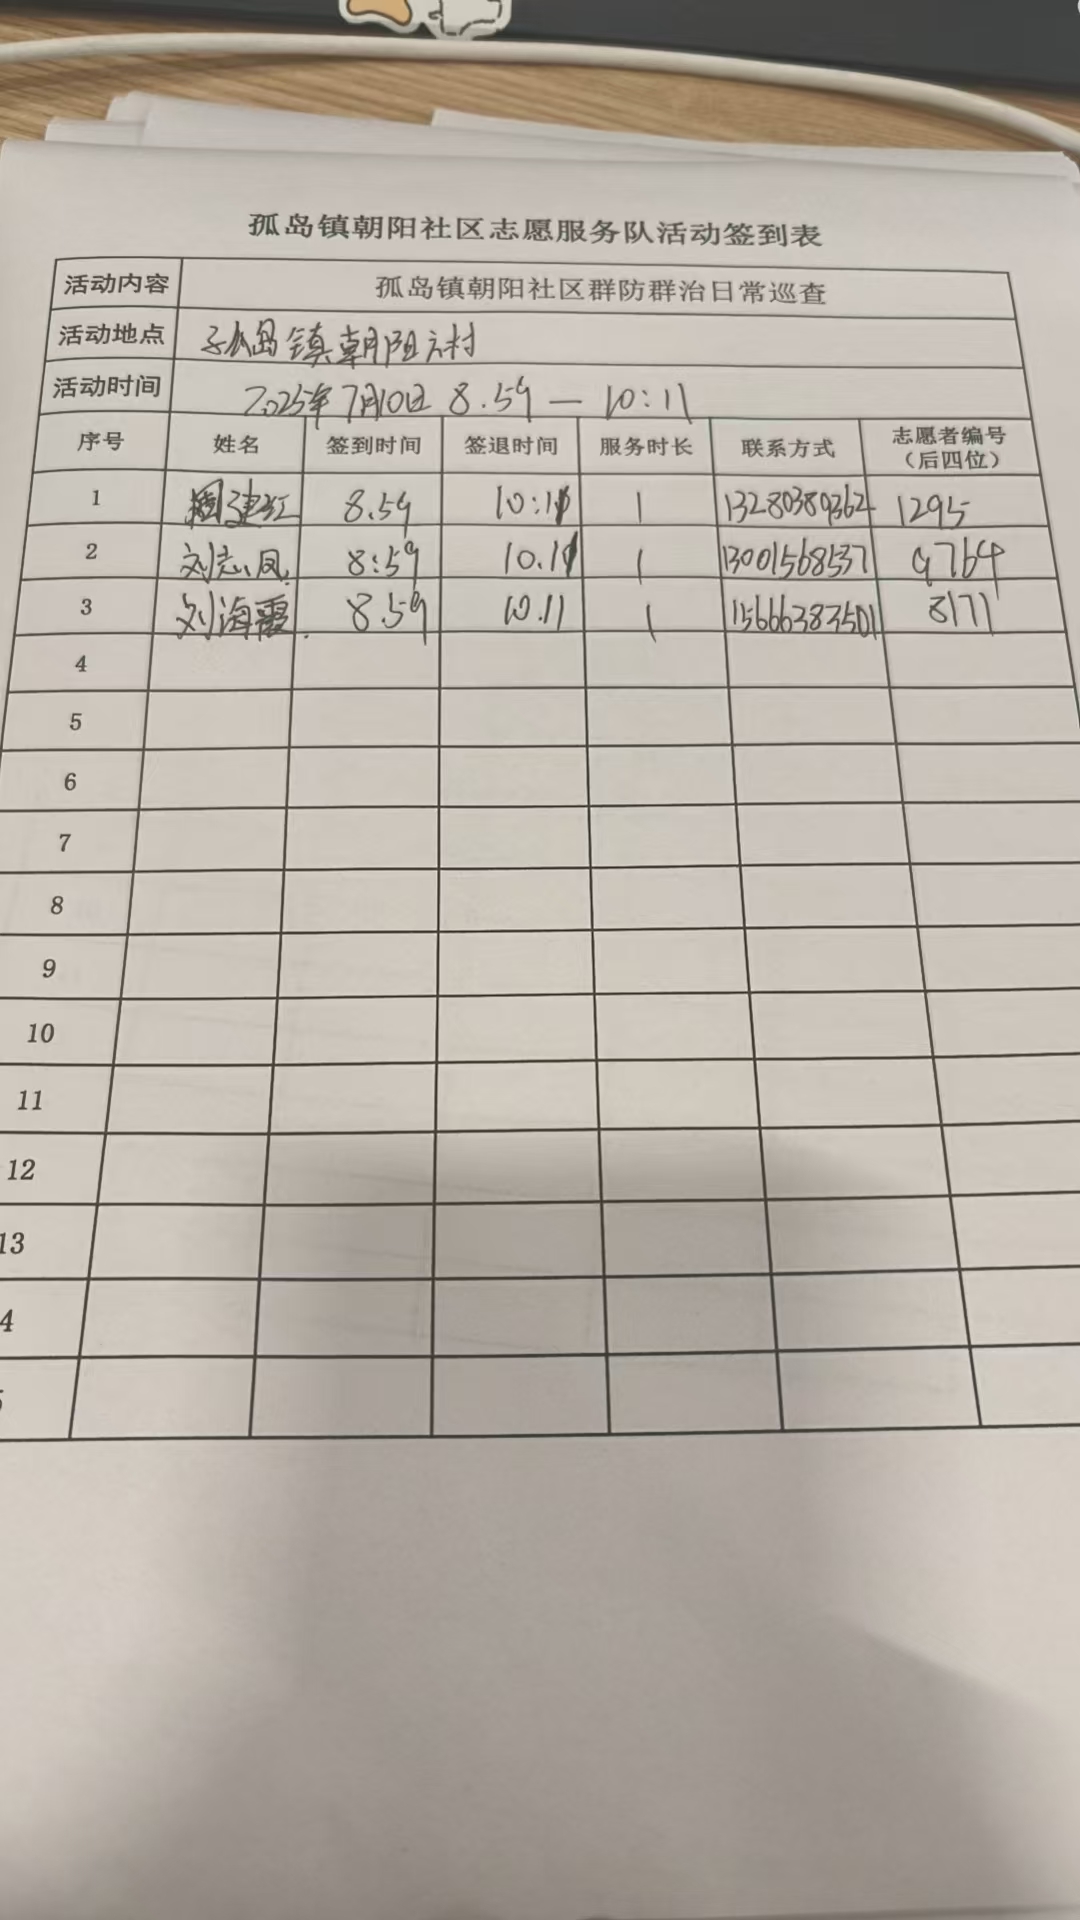 孤岛镇朝阳社区志愿服务队活动签到表
活动内容 孤岛镇朝阳社区群防群治日常巡查
活动地点 孤岛镇朝阳六村
活动时间 2025年7月10日 8.59 — 10:11
序号 姓名 签到时间 签退时间 服务时长 联系方式 志愿者编号
（后四位）
1 建红 8.59 10:11 1 13280389362 1295
2 刘志凤 8:59 10.11 1 13001568537 9764
3 刘海霞 8.59 10.11 1 15666383501 8171
4
5
6
7
8
9
10
11
12
13
4